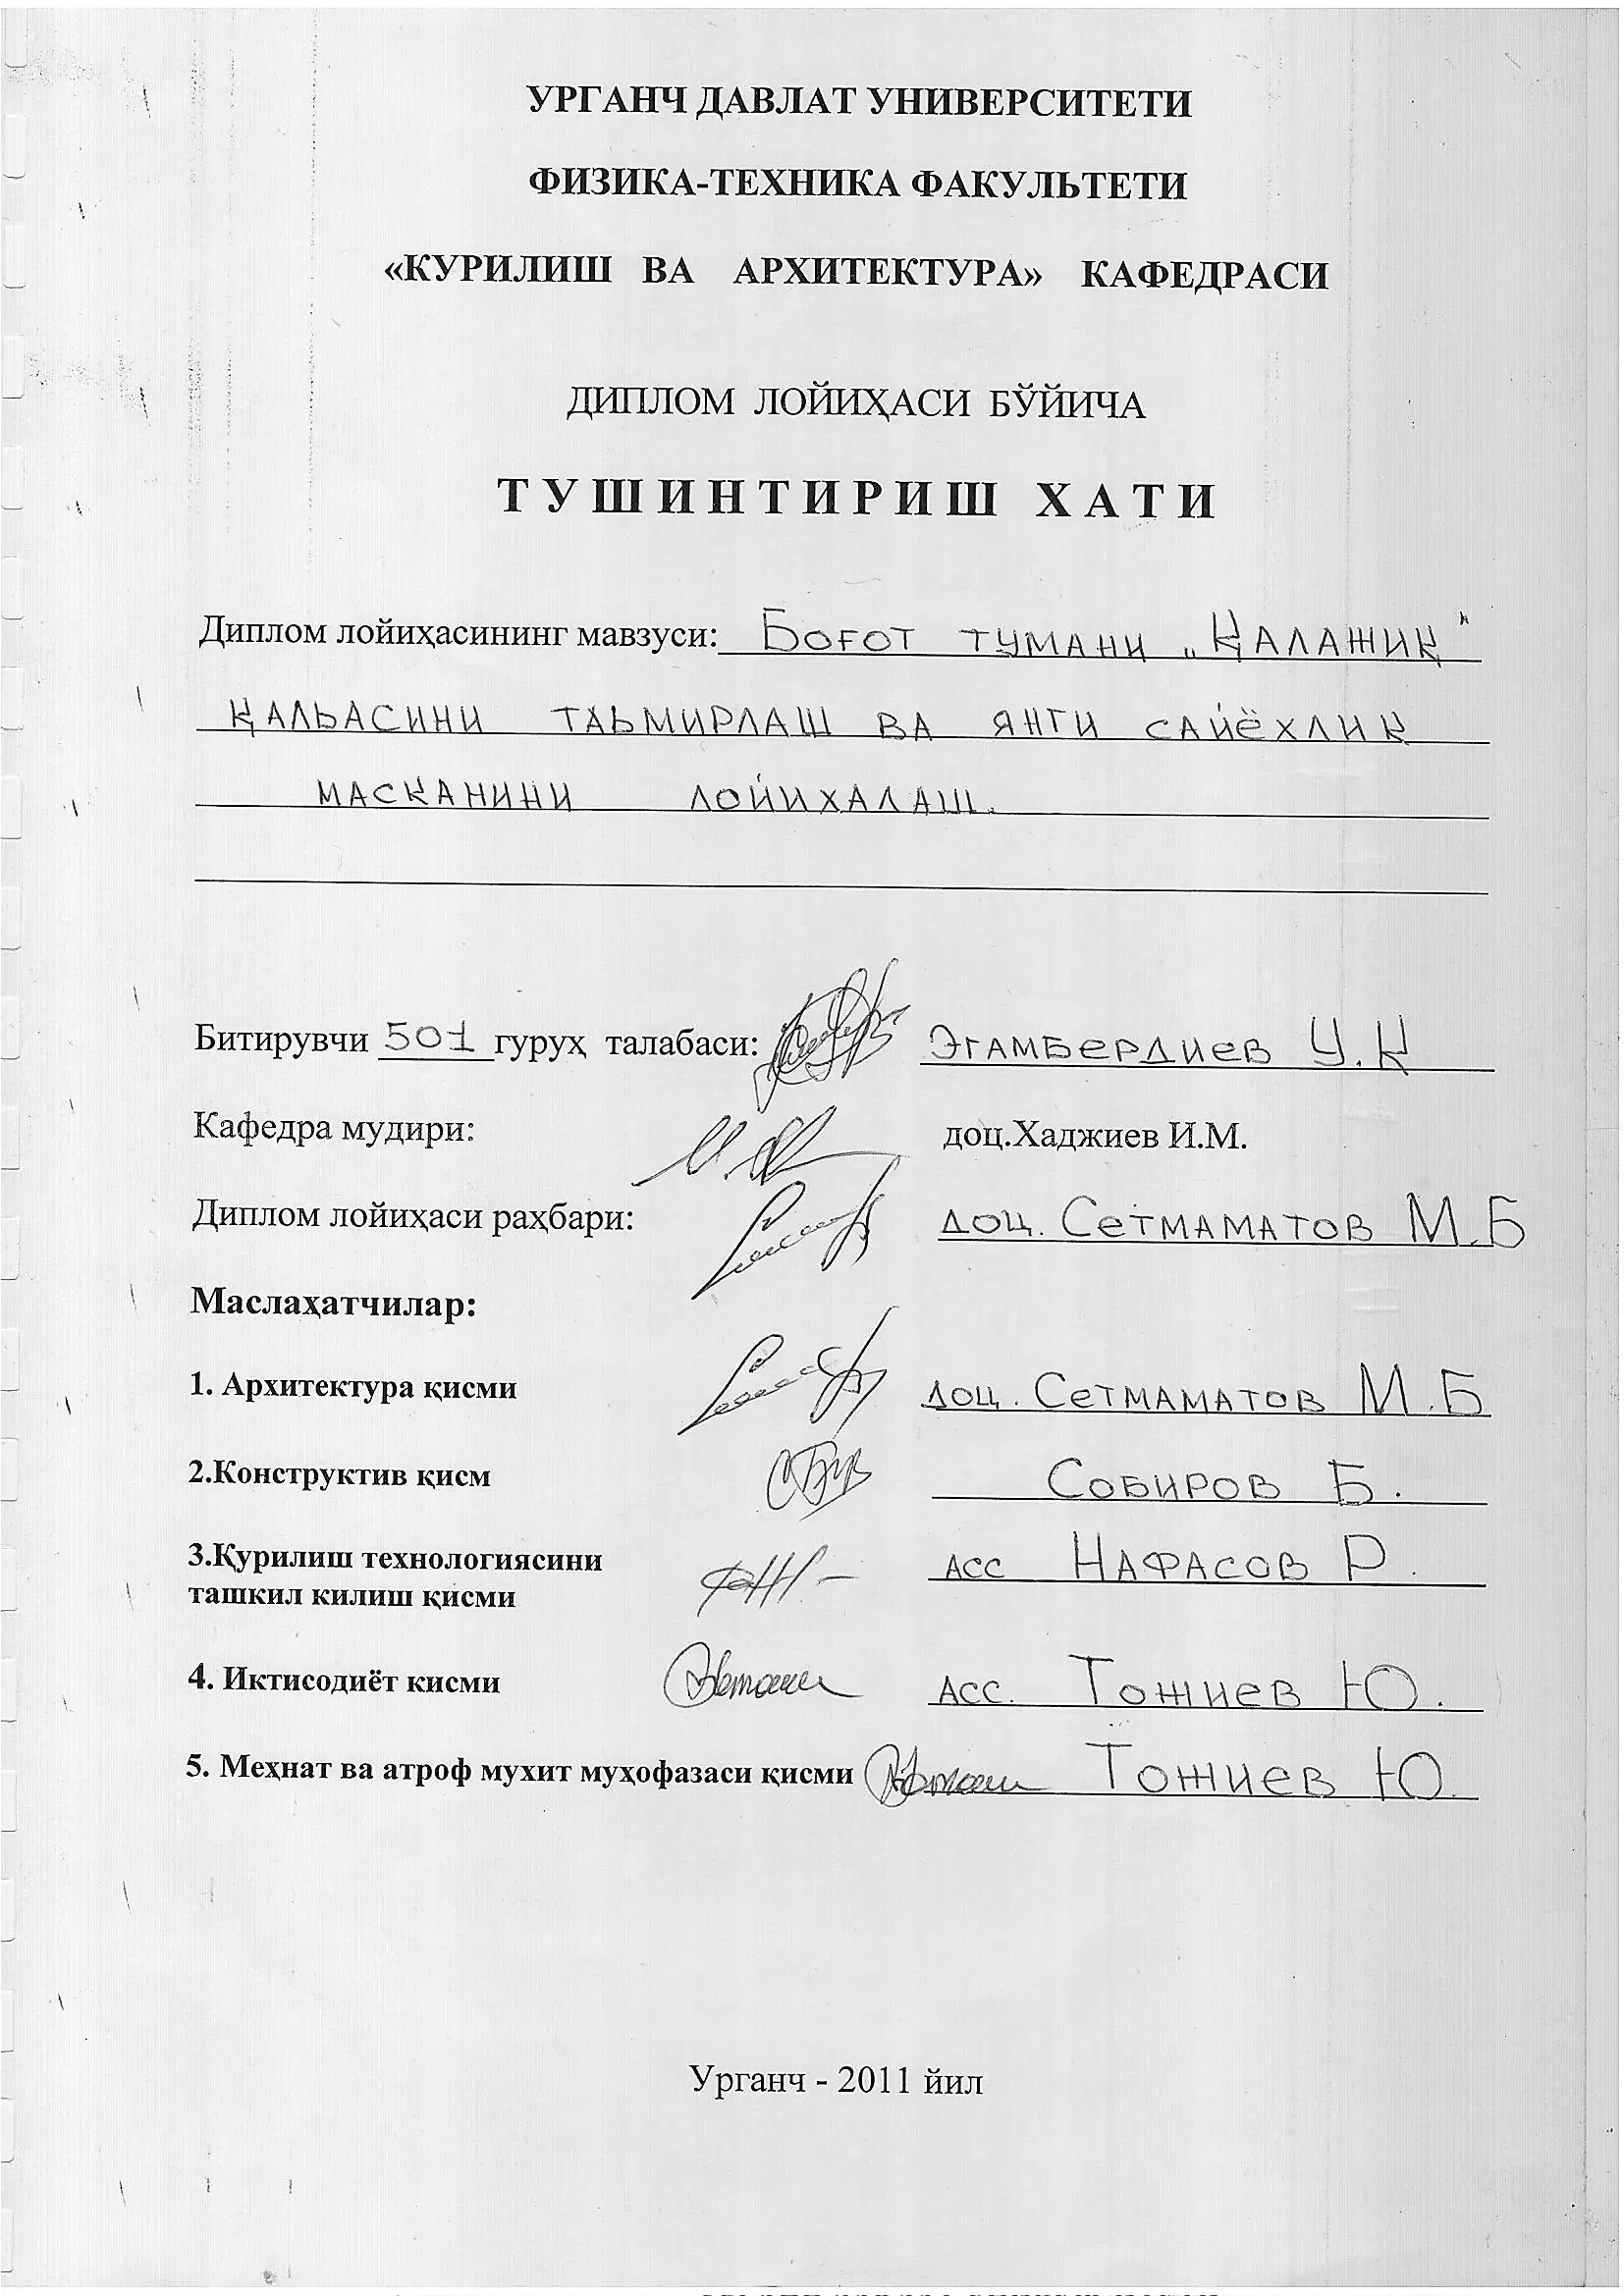 УРГАНЧ ДАВЛАТ УНИВЕРСИТЕТИ
ФИЗИКА-ТЕХНИКА ФАКУЛЬТЕТИ
«КУРИЛИШ ВА АРХИТЕКТУРА» КАФЕДРАСИ
ДИПЛОМ ЛОЙИҲАСИ БЎЙИЧА
ТУШИНТИРИШ ХАТИ
Диплом лойиҳасининг мавзуси: Боғот тумани „Қалажиқ"
қальасини таьмирлаш ва янги сайёхлик
масканини лойихалаш.
Битирувчи 501 гуруҳ талабаси: Эгамбердиев У.К
Кафедра мудири: доц.Хаджиев И.М.
Диплом лойиҳаси раҳбари: доц. Сетмаматов М.Б
Маслаҳатчилар:
1. Архитектура қисми доц. Сетмаматов М.Б
2.Конструктив қисм Собиров Б.
3.Қурилиш технологиясини асс Нафасов Р.
ташкил килиш қисми
4. Иктисодиёт кисми асс. Тожиев Ю.
5. Меҳнат ва атроф мухит муҳофазаси қисми Тожиев Ю.
Урганч - 2011 йил